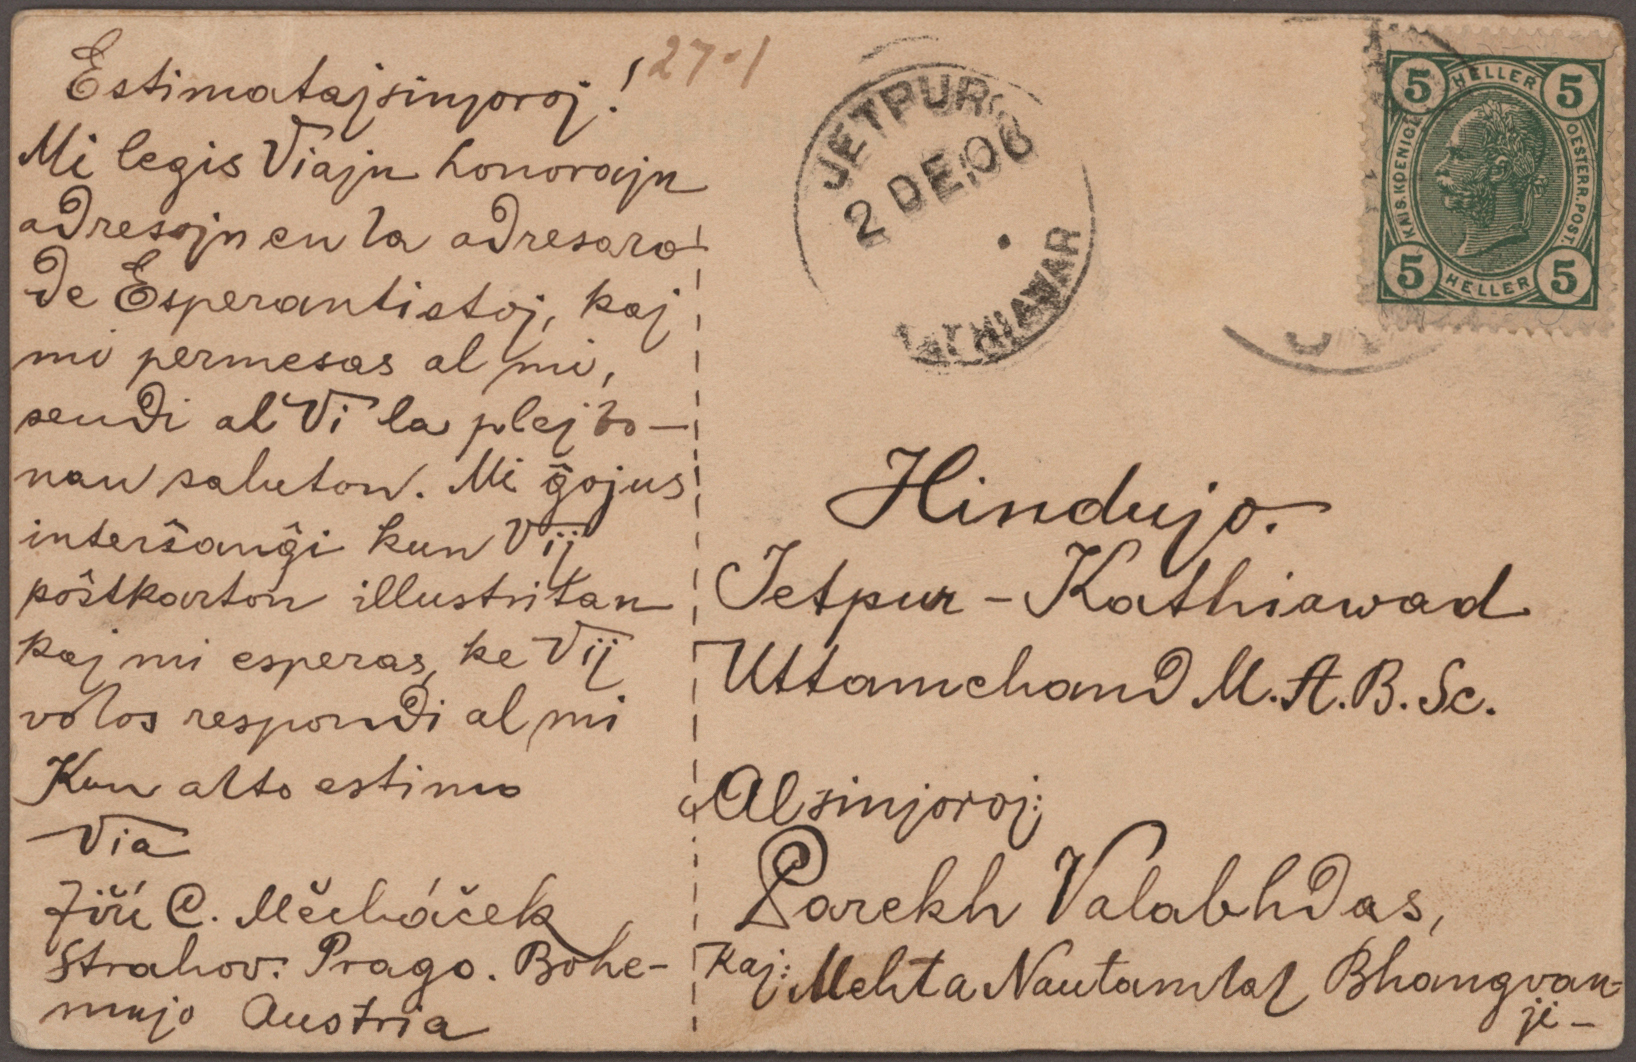 Estimataj sinjoroj!
27-1
Mi legis Viajn honorajn
adresojn en la adresaro
de Esperantistoj, kaj
mi permesas al mi,
sendi al Vi la plej bo-
nan saluton. Mi ĝojus
interŝanĝi kun Vij
pôstkarton illustritan
kaj mi esperas, ke Vij
volos respondi al mi
Kun alto estimo
Via
Jiří C.
Strahov. Prago. Bohe-
mujo Austria
JETPUR
2 DE 06
KATHIAWAR
5 HELLER 5
KAIS. KOENIGL. OESTERR. POST.
5 HELLER 5
Hindujo.
Jetpur - Kathiawad
Uttamchand M.A.B.Sc.
Al sinjoroj:
Parekh Valabhdas,
Kaj: Mehta Nautamlal Bhangvan-
ji-